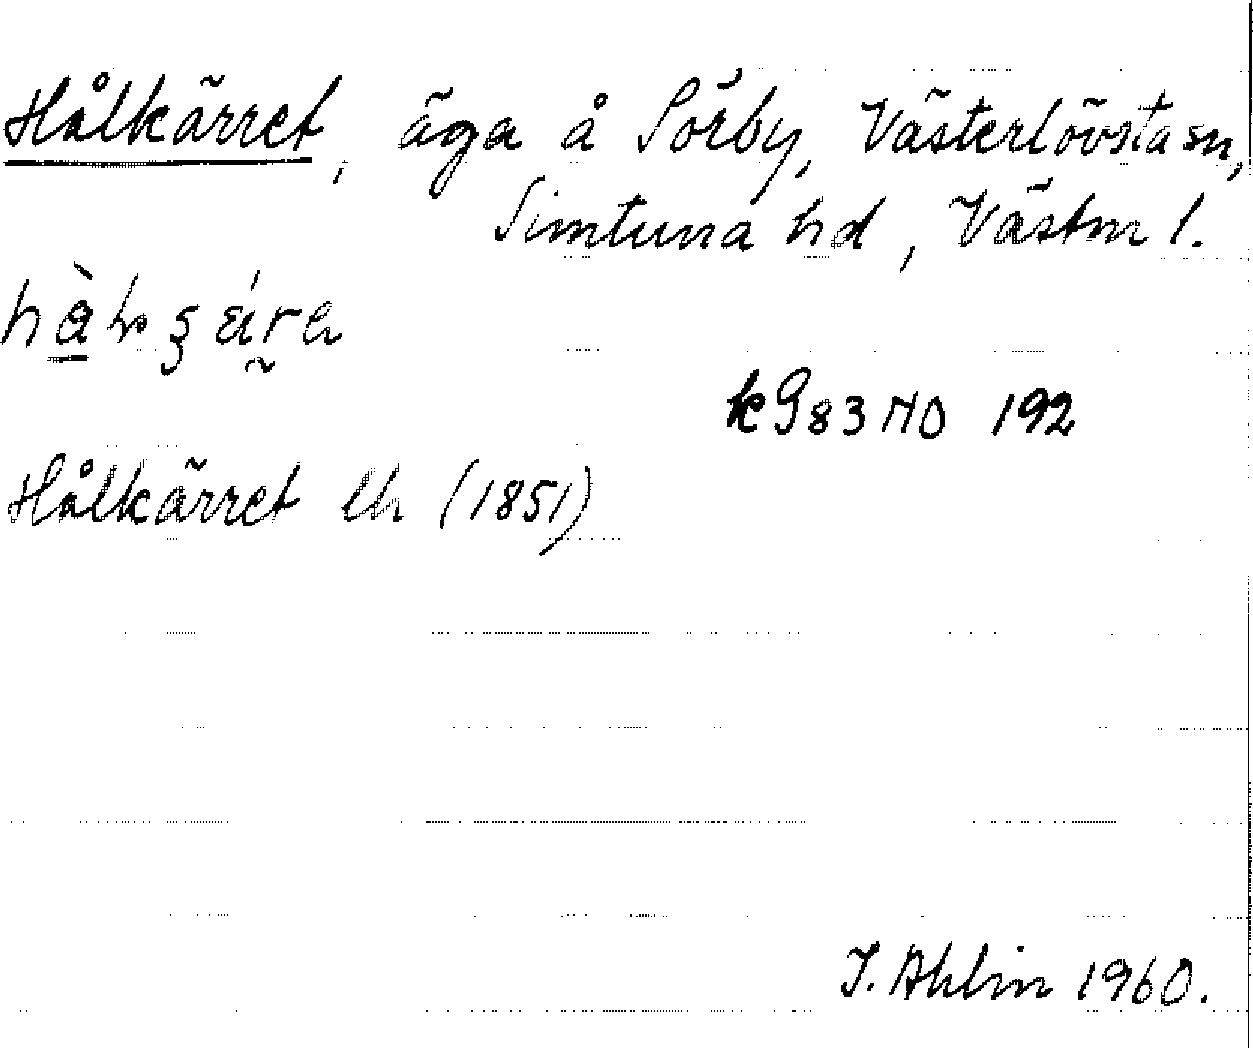 Hålkärret, äga å Sörby, Västerlövsta sn,
Simtuna hd, Västm l.
kg 83 NO 192
Hålkärret lh (1851)
I. Ahlin 1960.